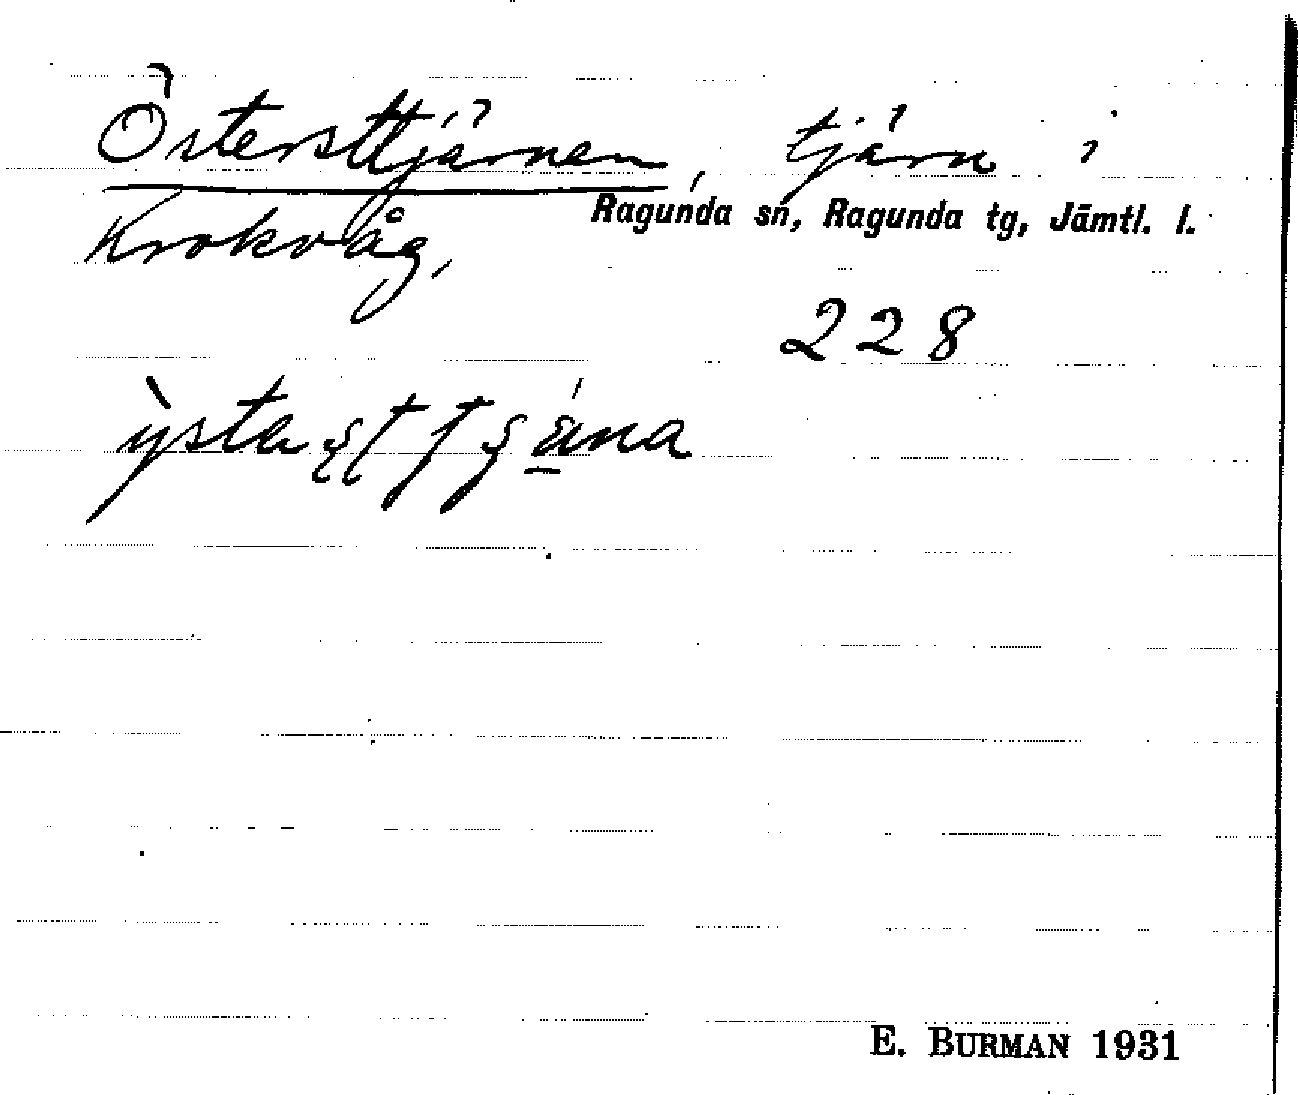 Östersttjärnen, tjärn i
Ragunda sn, Ragunda tg, Jämtl. l.
Krokvåg,
228
E. BURMAN 1931